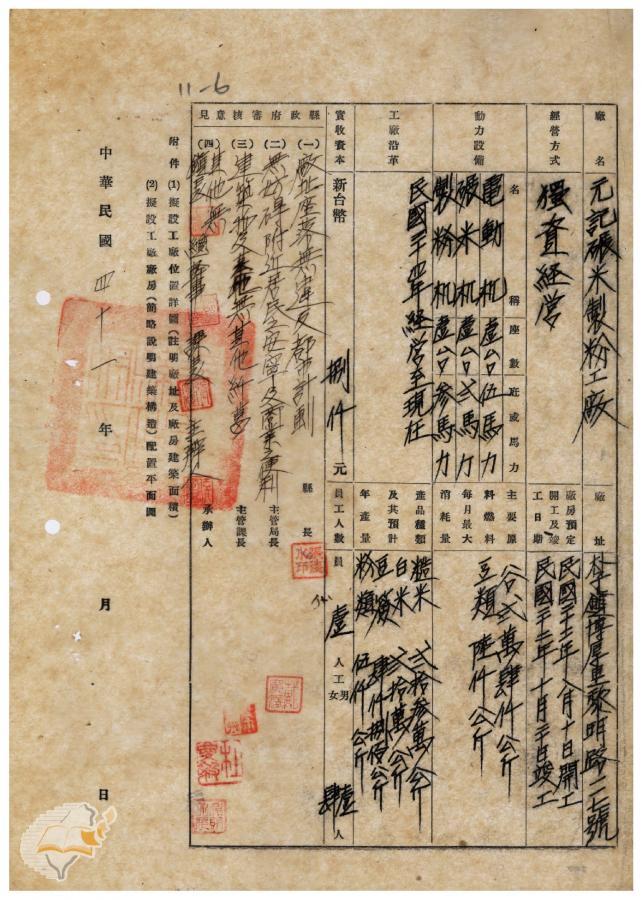 11-6
廠名 元記碾米製粉工廠
廠址 社鎮博厚里黎明路二七號
經營方式 獨資經營
廠房預定開工及竣工日期
民國三十二年八月十日開工
民國三十二年十月三日竣工
動力設備
名稱 座數 匹或馬力
電動机 壹台 伍馬力
碾米机 壹台 弍馬力
製粉机 壹台 參馬力
主要原料燃料每月最大消耗量
谷弍萬肆仟公斤
豆類陸仟公斤
工廠沿革
民國三十年經营至現在
產品種類及其預計年產量
糙米 弍拾參萬公斤
白米 弍拾萬公斤
豆 肆仟捌佰公斤
粉類 伍仟公斤
實收資本 新台幣 捌仟元
員工人數 員 壹人 工 男 壹 女 肆 人
縣政府審核意見
(一)廠址座落無違反都市計劃
(二)無妨碍附近居民之安寧及商業之便利
(三)建築物及其他無其他糾葛
(四)其他無
縣長
主管局長
主管課長
承辦人
附件 (1)擬設工廠位置詳圖(註明廠址及廠房建築面積)
(2)擬設工廠廠房(簡略說明建築構造)配置平面圖
中華民國四十一年 月 日